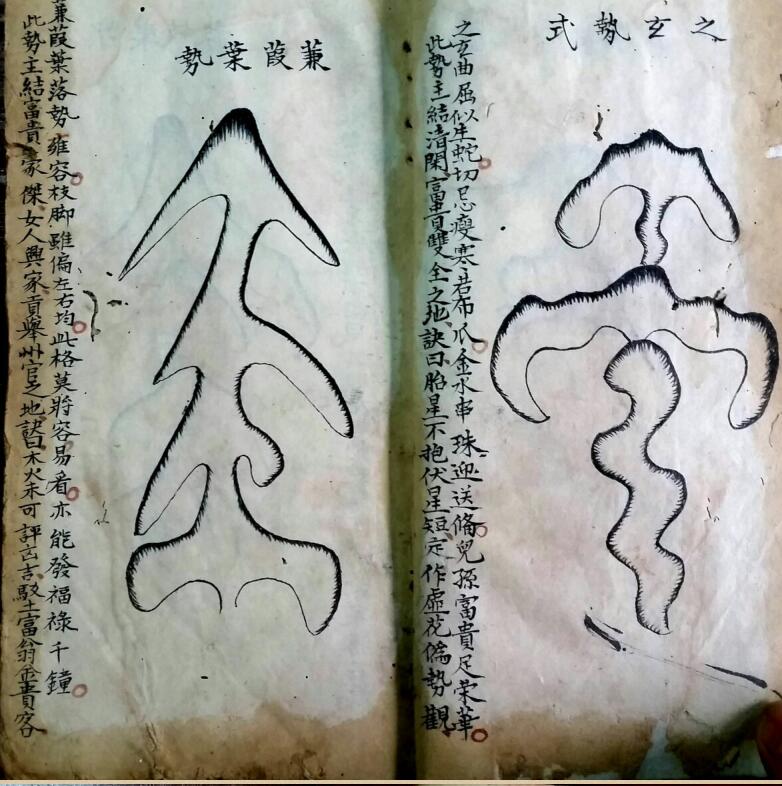 之玄勢式
之玄曲屈似生蛇切忌瘦寒若布爪金水串珠迎送俻兒孫富貴足榮華
此勢主結清閑富貴雙全之地訣曰胎星不抱伏星短定作虛花僞勢觀
蒹葭葉勢
蒹葭葉落勢雍容枝脚雖偏左右均此格莫將容易看亦能發福祿千鐘
此勢主結富貴豪傑女人興家貢舉州官之地訣曰木火未可評凶吉土富翁金貴客